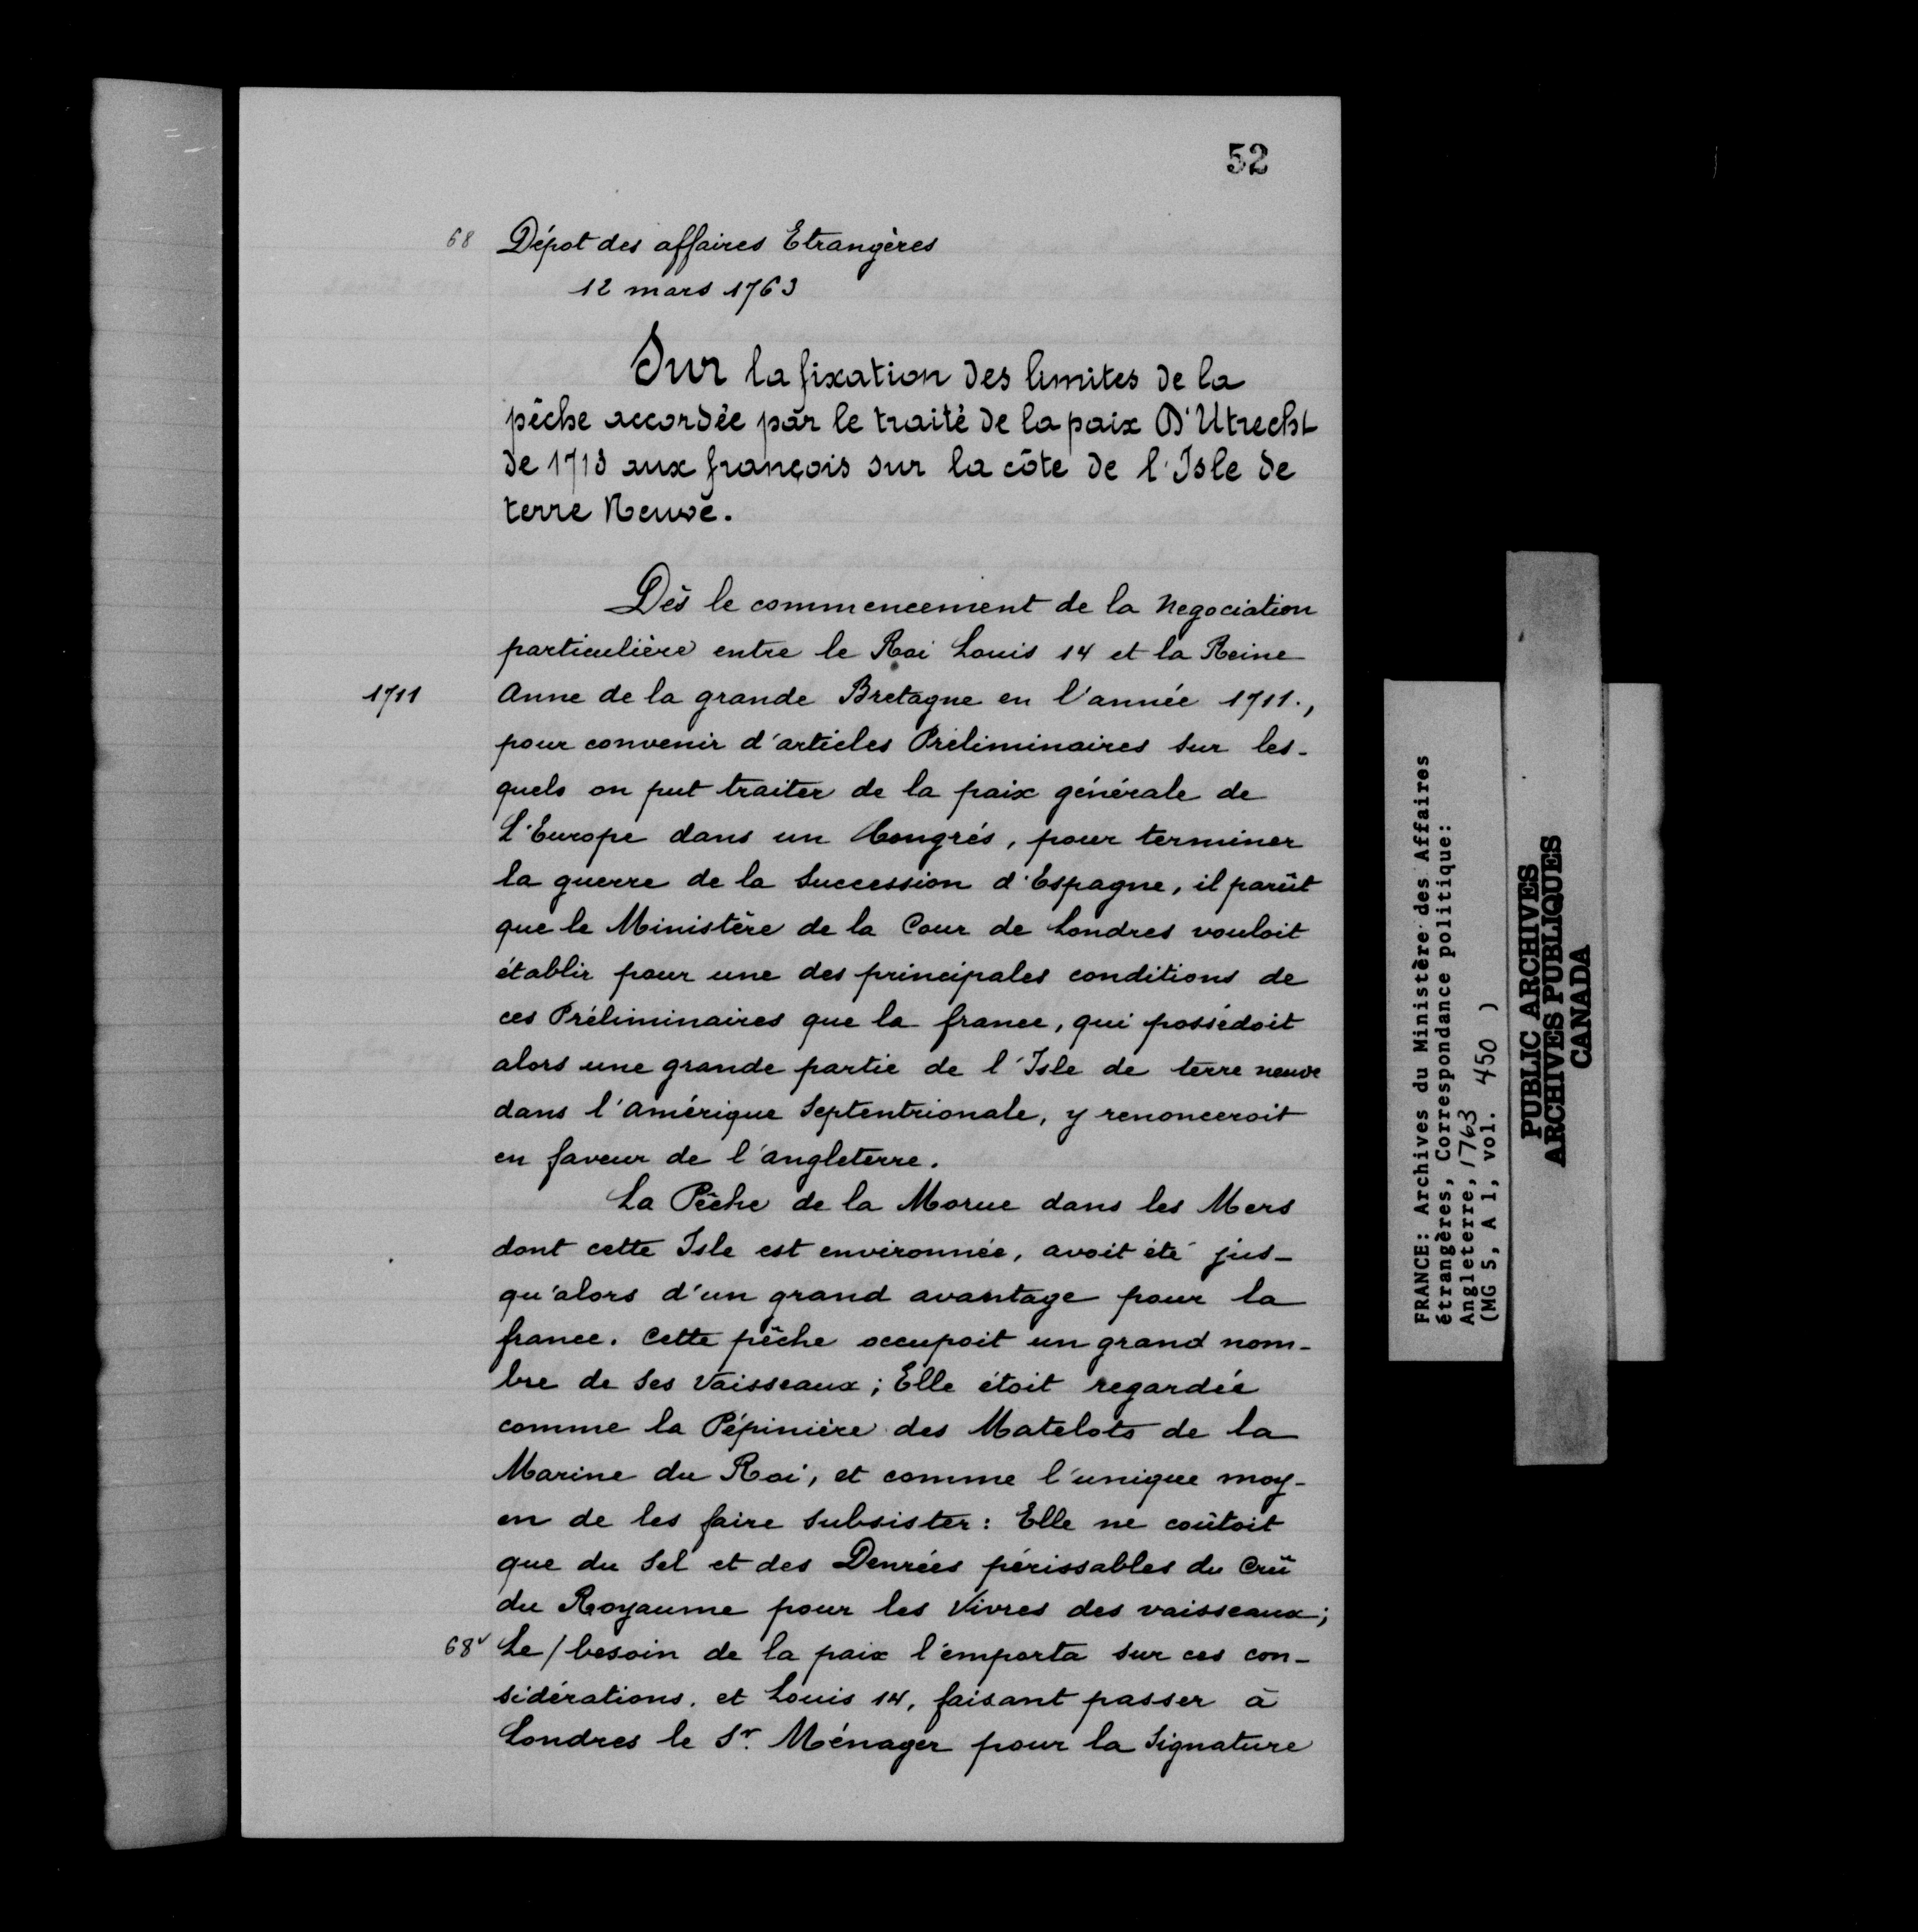 52
68 Dépot des affaires Etrangères
12 mars 1763
Sur la fixation des limites de la
pêche accordée par le traité de la paix D'Utrecht
de 1713 aux françois sur la côte de l'Isle de
terre Neuve.
Dès le commencement de la Negociation
particulière entre le Roi Louis 14 et la Reine
1711 Anne de la grande Bretagne en l'année 1711.,
pour convenir d'articles Préliminaires sur les-
quels on put traiter de la paix générale de
L'Europe dans un Congrés, pour terminer
la guerre de la Succession d'Espagne, il parût
que le Ministère de la Cour de Londres vouloit
établir pour une des principales conditions de
ces Préliminaires que la france, qui possédoit
alors une grande partie de l'Isle de terre neuve
dans l'amérique Septentrionale, y renonceroit
en faveur de l'angleterre.
La Pêche de la Morue dans les Mers
dont cette Isle est environnée, avoit été jus-
qu'alors d'un grand avantage pour la
france. Cette pêche occupoit un grand nom-
bre de ses Vaisseaux ; Elle étoit regardée
comme la Pépinière des Matelots de la
Marine du Roi, et comme l'unique moy-
en de les faire subsister : Elle ne coûtoit
que du Sel et des Denrées périssables du Crû
du Royaume pour les Vivres des vaisseaux ;
68v Le / besoin de la paix l'emporta sur ces con-
sidérations. et Louis 14, faisant passer à
Londres le Sr. Ménager pour la Signature
FRANCE: Archives du Ministère des Affaires
étrangères, Correspondance politique:
Angleterre, 1763
(MG 5, A 1, vol. 450 )
PUBLIC ARCHIVES
ARCHIVES PUBLIQUES
CANADA